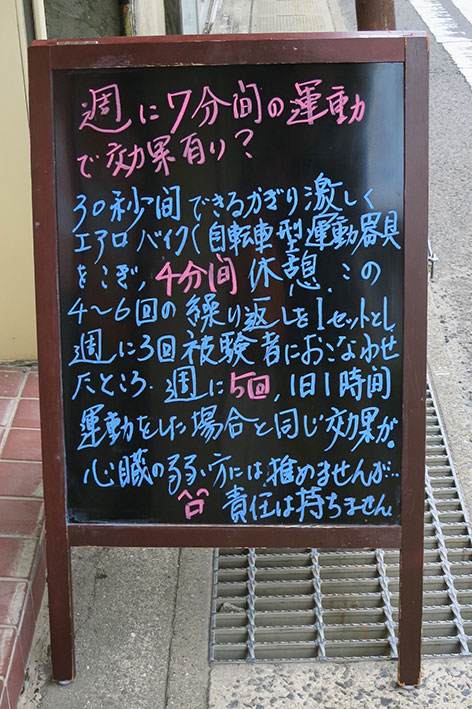 週に7分間の運動
で効果有り?
30秒間できるかぎり激しく
エアロバイク(自転車型運動器具
をこぎ、4分間休憩、この
4〜6回の繰り返しを1セットとし
週に3回被験者におこなわせ
たところ、週に5回,1日1時間
運動をした場合と同じ効果が。
心臓の弱い方には推めませんが…
責任は持ちません